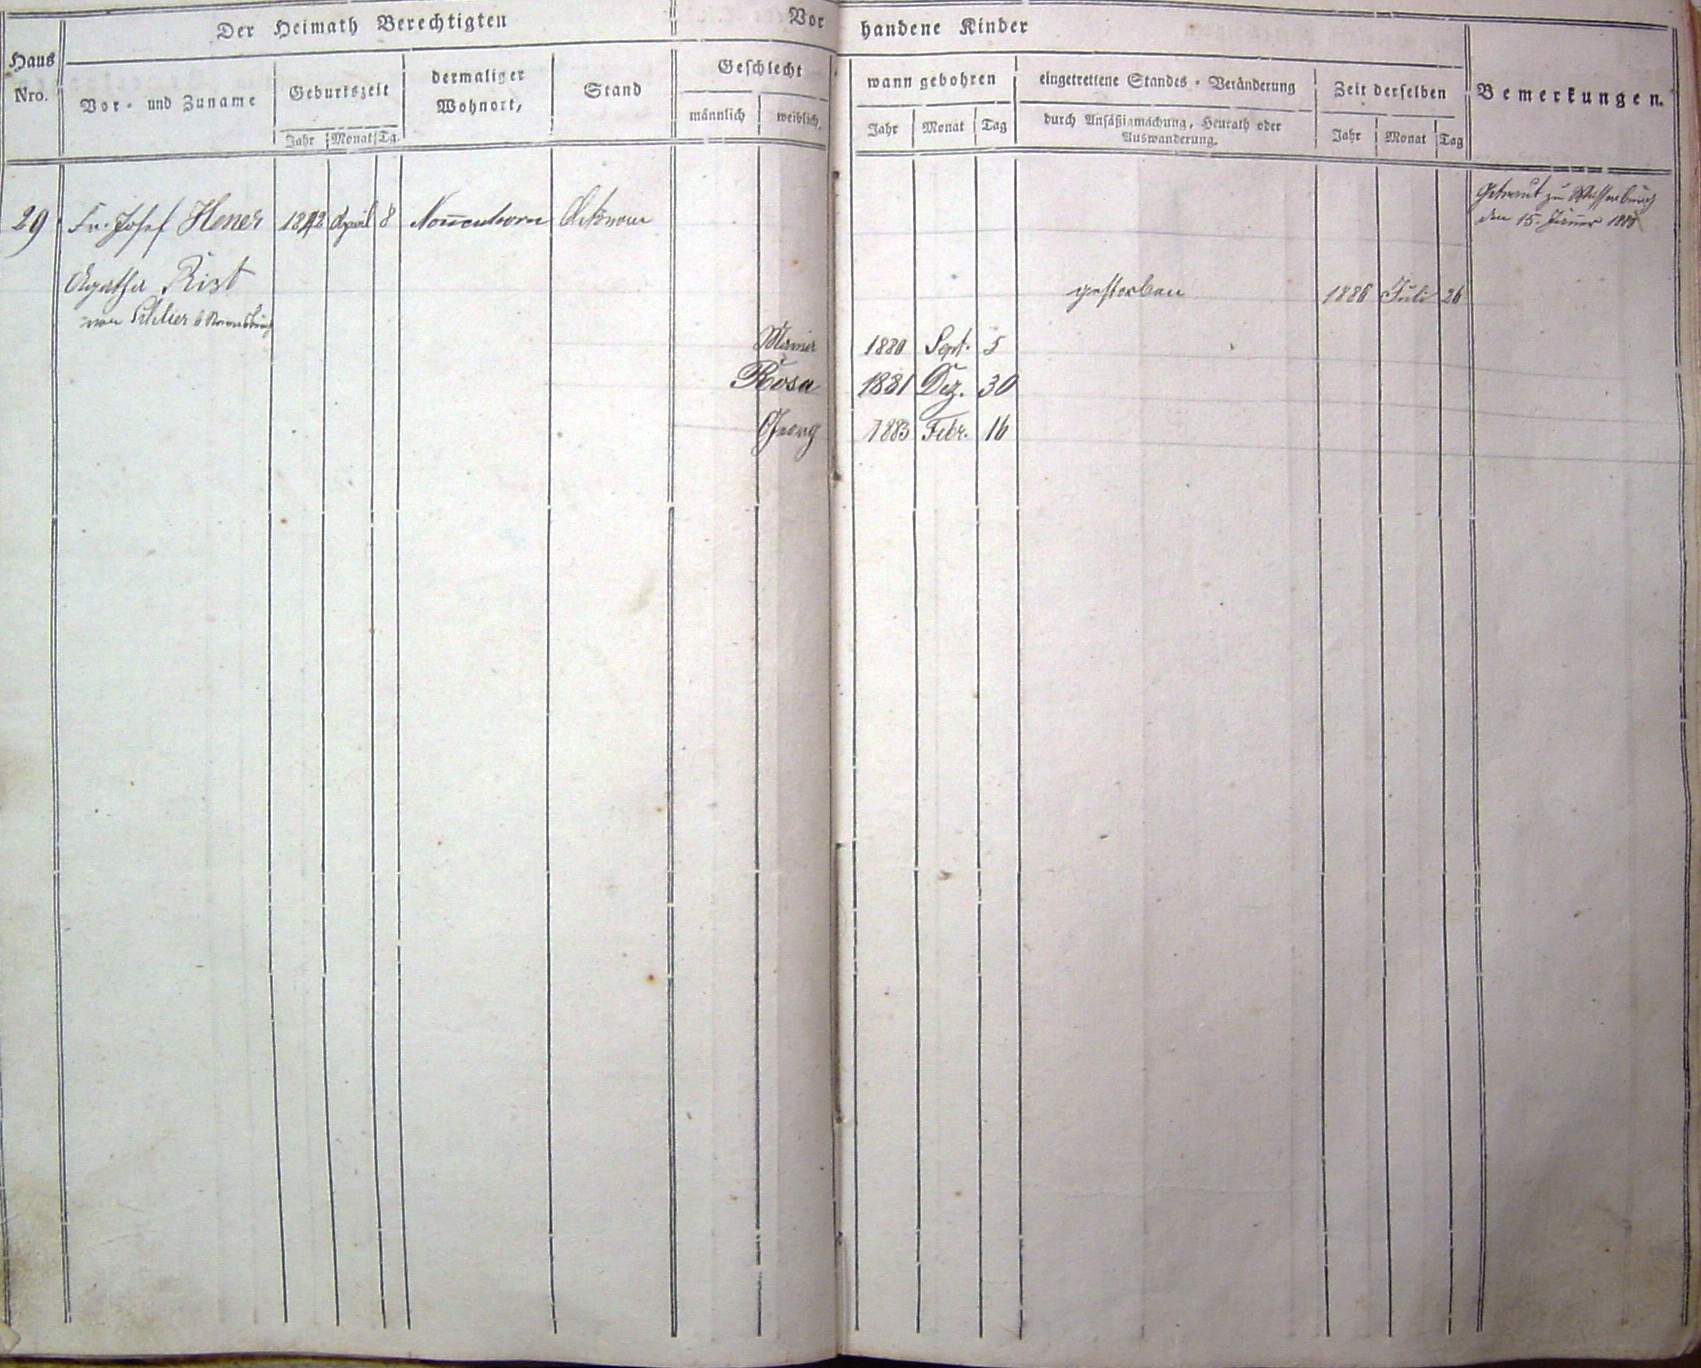 Der Heimath Berechtigten
Vorhandene Kinder
Haus Nro.
Vor- und Zuname
Geburtszeit
Jahr Monat Tg.
dermaliger Wohnort,
Stand
Geschlecht
männlich weiblich.
wann gebohren
Jahr Monat Tag
eingetrettene Standes-Veränderung
durch Ansäßigmachung, Heurath oder
Auswanderung.
Zeit derselben
Jahr Monat Tag
Bemerkungen.
29 Fr. Josef Hener 1842 April 8 Nonnenhorn Oekonom
Getraut zu Wasserburg
den 15. Jänner
Agatha Rist gestorben 1886 Juli 26
von Schlier b Ravensburg
1880 Sept. 5
Rosa 1881 Dez. 30
Georg 1883 Febr. 16